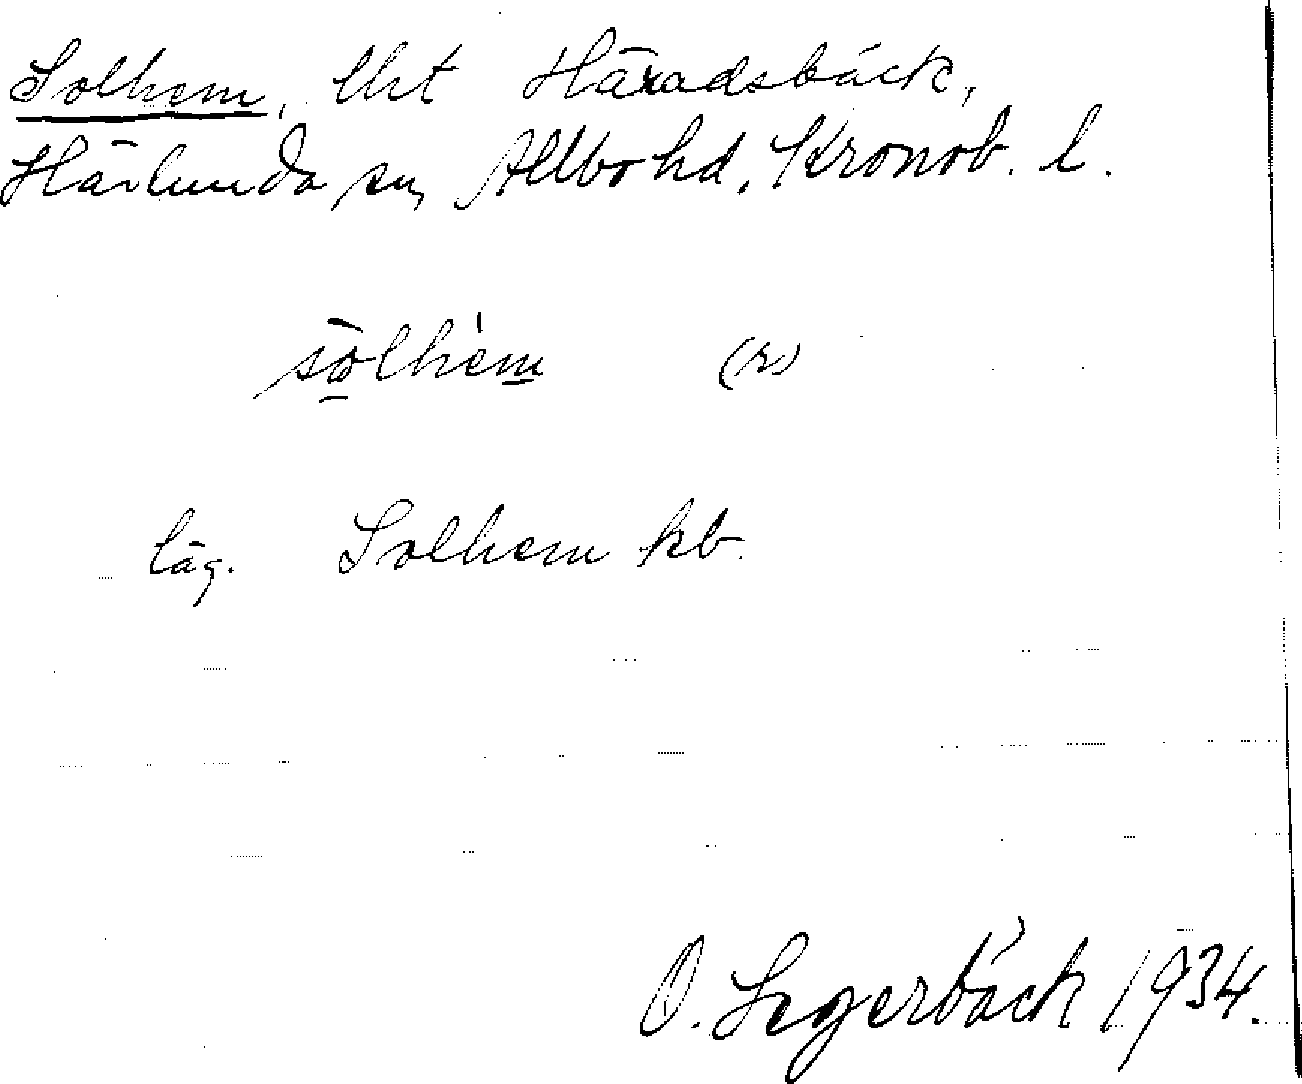 Solhem, lht Häradsbäck,
Härlunda sn, Allbo hd, Kronob. l.
sōlhèm (r)
läg. Solhem kb.
O. Segerbäck 1934.